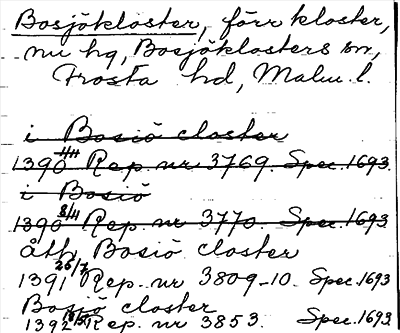 Bosjökloster, förr kloster,
nu hg, Bosjöklosters sn,
Frosta hd, Malm. l.
i Bosiö closter
1390 4/4 Rep. nr 3769. Spec. 1693.
i Bosiö
1390 8/4 Rep. nr 3770. Spec. 1693.
åth Bosiö closter
1391 26/7 Rep. nr 3809-10. Spec. 1693
Bosjö closter
1392 Rep. nr 3853. Spec. 1693.